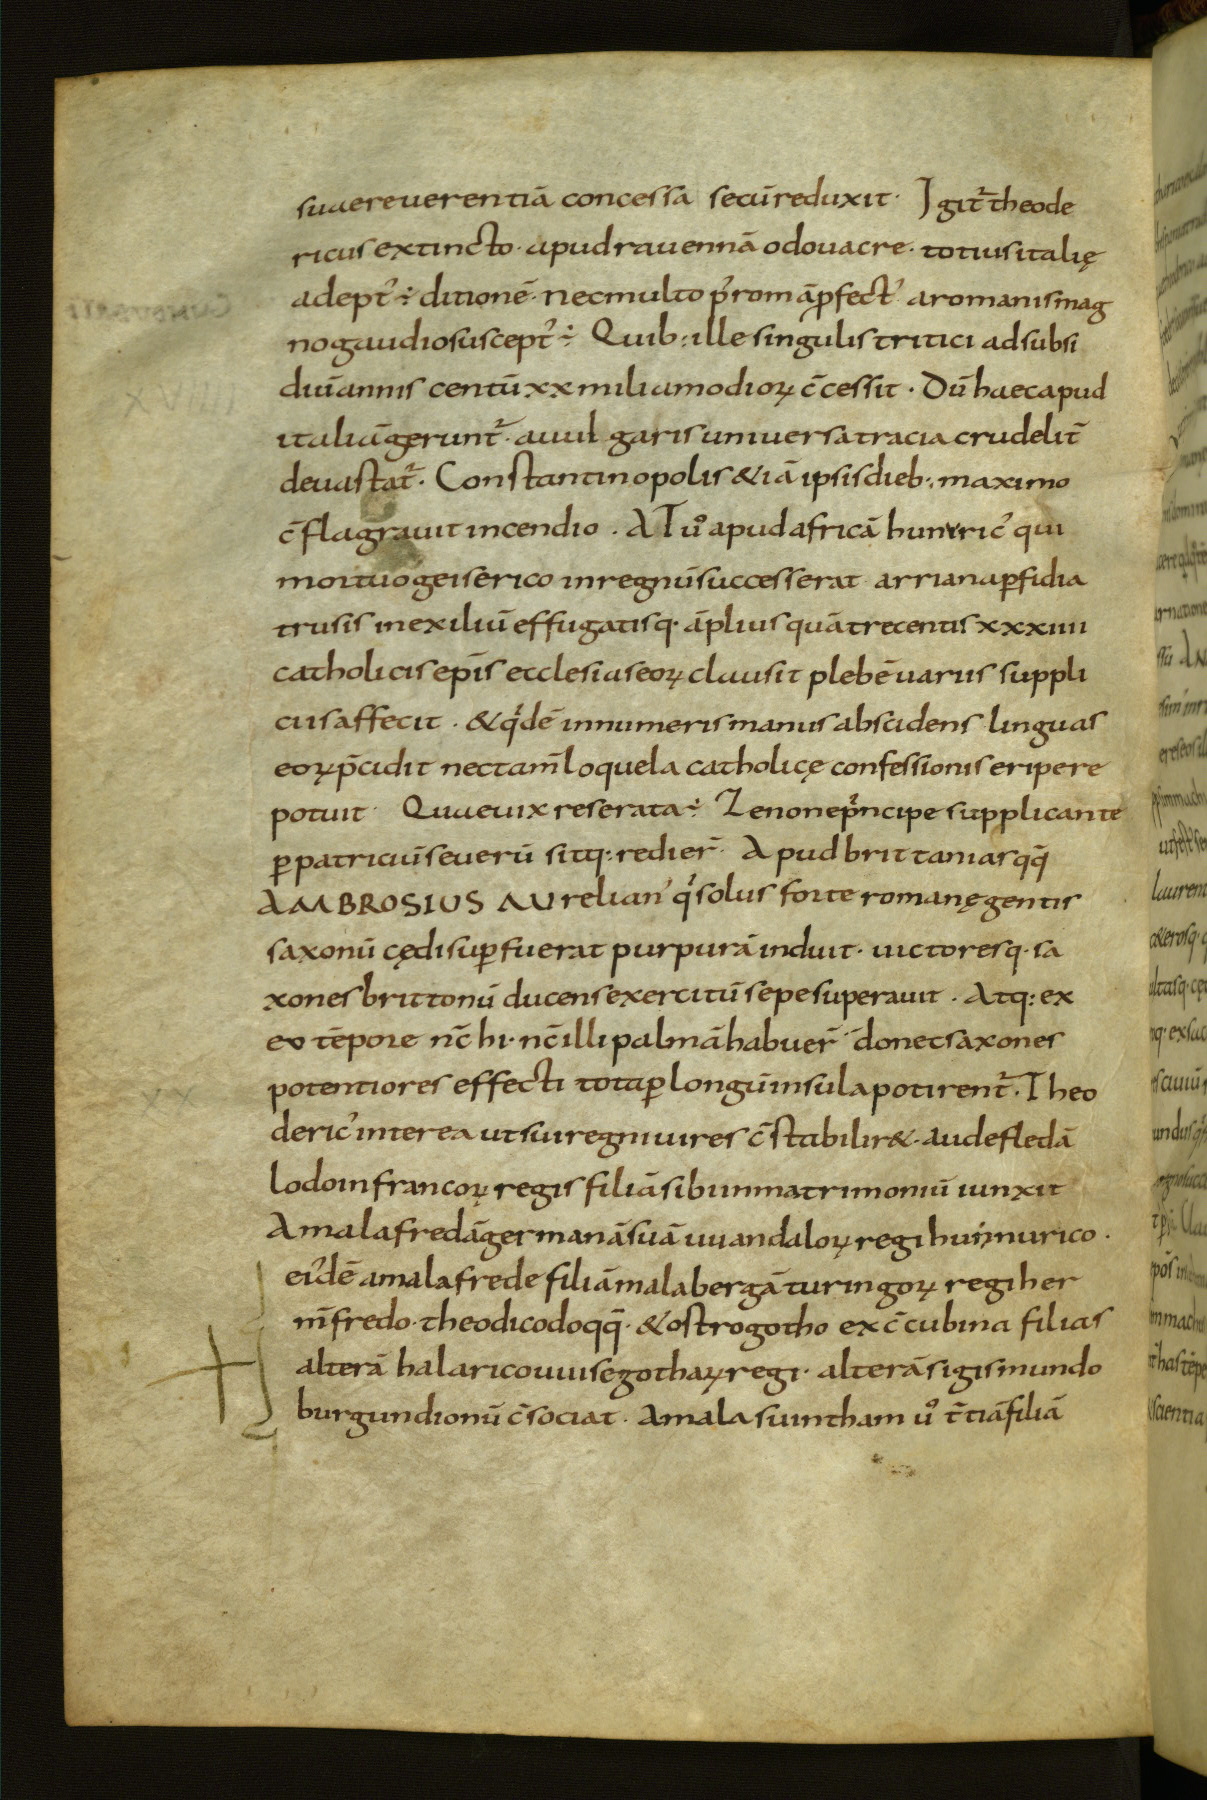 suae reuerentiā concessa secū reduxit· Igit᷑ theode
ricus extincto· apud rauennā odouacre· totius italię
adept᾽ ÷ ditionē· nec multo p᾽ romā ꝓfect᾽ a romanis mag
no gaudio suscept᾽ ÷ Quib: ille singulis tritici ad subsi
diū annis centū xx milia modioꝝ c̄cessit· Dū haec apud
italiā gerunt᷑· a uulgaris uniuersa tracia crudelit̄
deuastat᷑· Constantinopolis &iā ipsis dieb: maximo
c̄flagrauit incendio· AT u͛o apud africā huneric᾽ qui
mortuo geiserico in regnū successerat arriana ꝑfidia
trusis in exiliū effugatisq· āplius quā trecentis xxxiiii
catholicis ep̄is ecclesias eoꝝ clausit plebē uariis suppli
ciis affecit· & qͥdē innumeris manus abscidens linguas
eoꝝ p̄cidit nec tam̄ loquela catholicę confessionis eripere
potuit· Quae uix reserata ÷ Zenone pͥncipe supplicante
ꝑ patriciū seuerū sitq: redier̄· Apud brittanias qq̄
AMBROSIUS AUrelian᾽ qͥ solus forte romanę gentis
saxonū cędi suꝑfuerat purpurā induit· uictoresq· sa
xones brittonū ducens exercitū sepe superauit· Atq: ex
eo tēpore nc̄ hi· nc̄ illi palmā habuer̄ donec saxones
potentiores effecti tota ꝑ longū insula potirent᷑· Theo
deric᾽ interea ut sui regni uires c̄stabilir&· audefledā
lodoin francoꝝ regis filiā sibi in matrimoniū iunxit
Amalafredā germanā suā uuandaloꝝ regi hunnurico·
ei᾽dē amalafrede filiā malabergā turingoꝝ regi her
mīfredo· theodicodo qq̄· & ostrogotho ex c̄cubina filias
alterā halarico uuisegothaꝝ regi· alterā sigismundo
burgundionū c̄sociat· Amalasuintham u͛o t̄tiā filiā